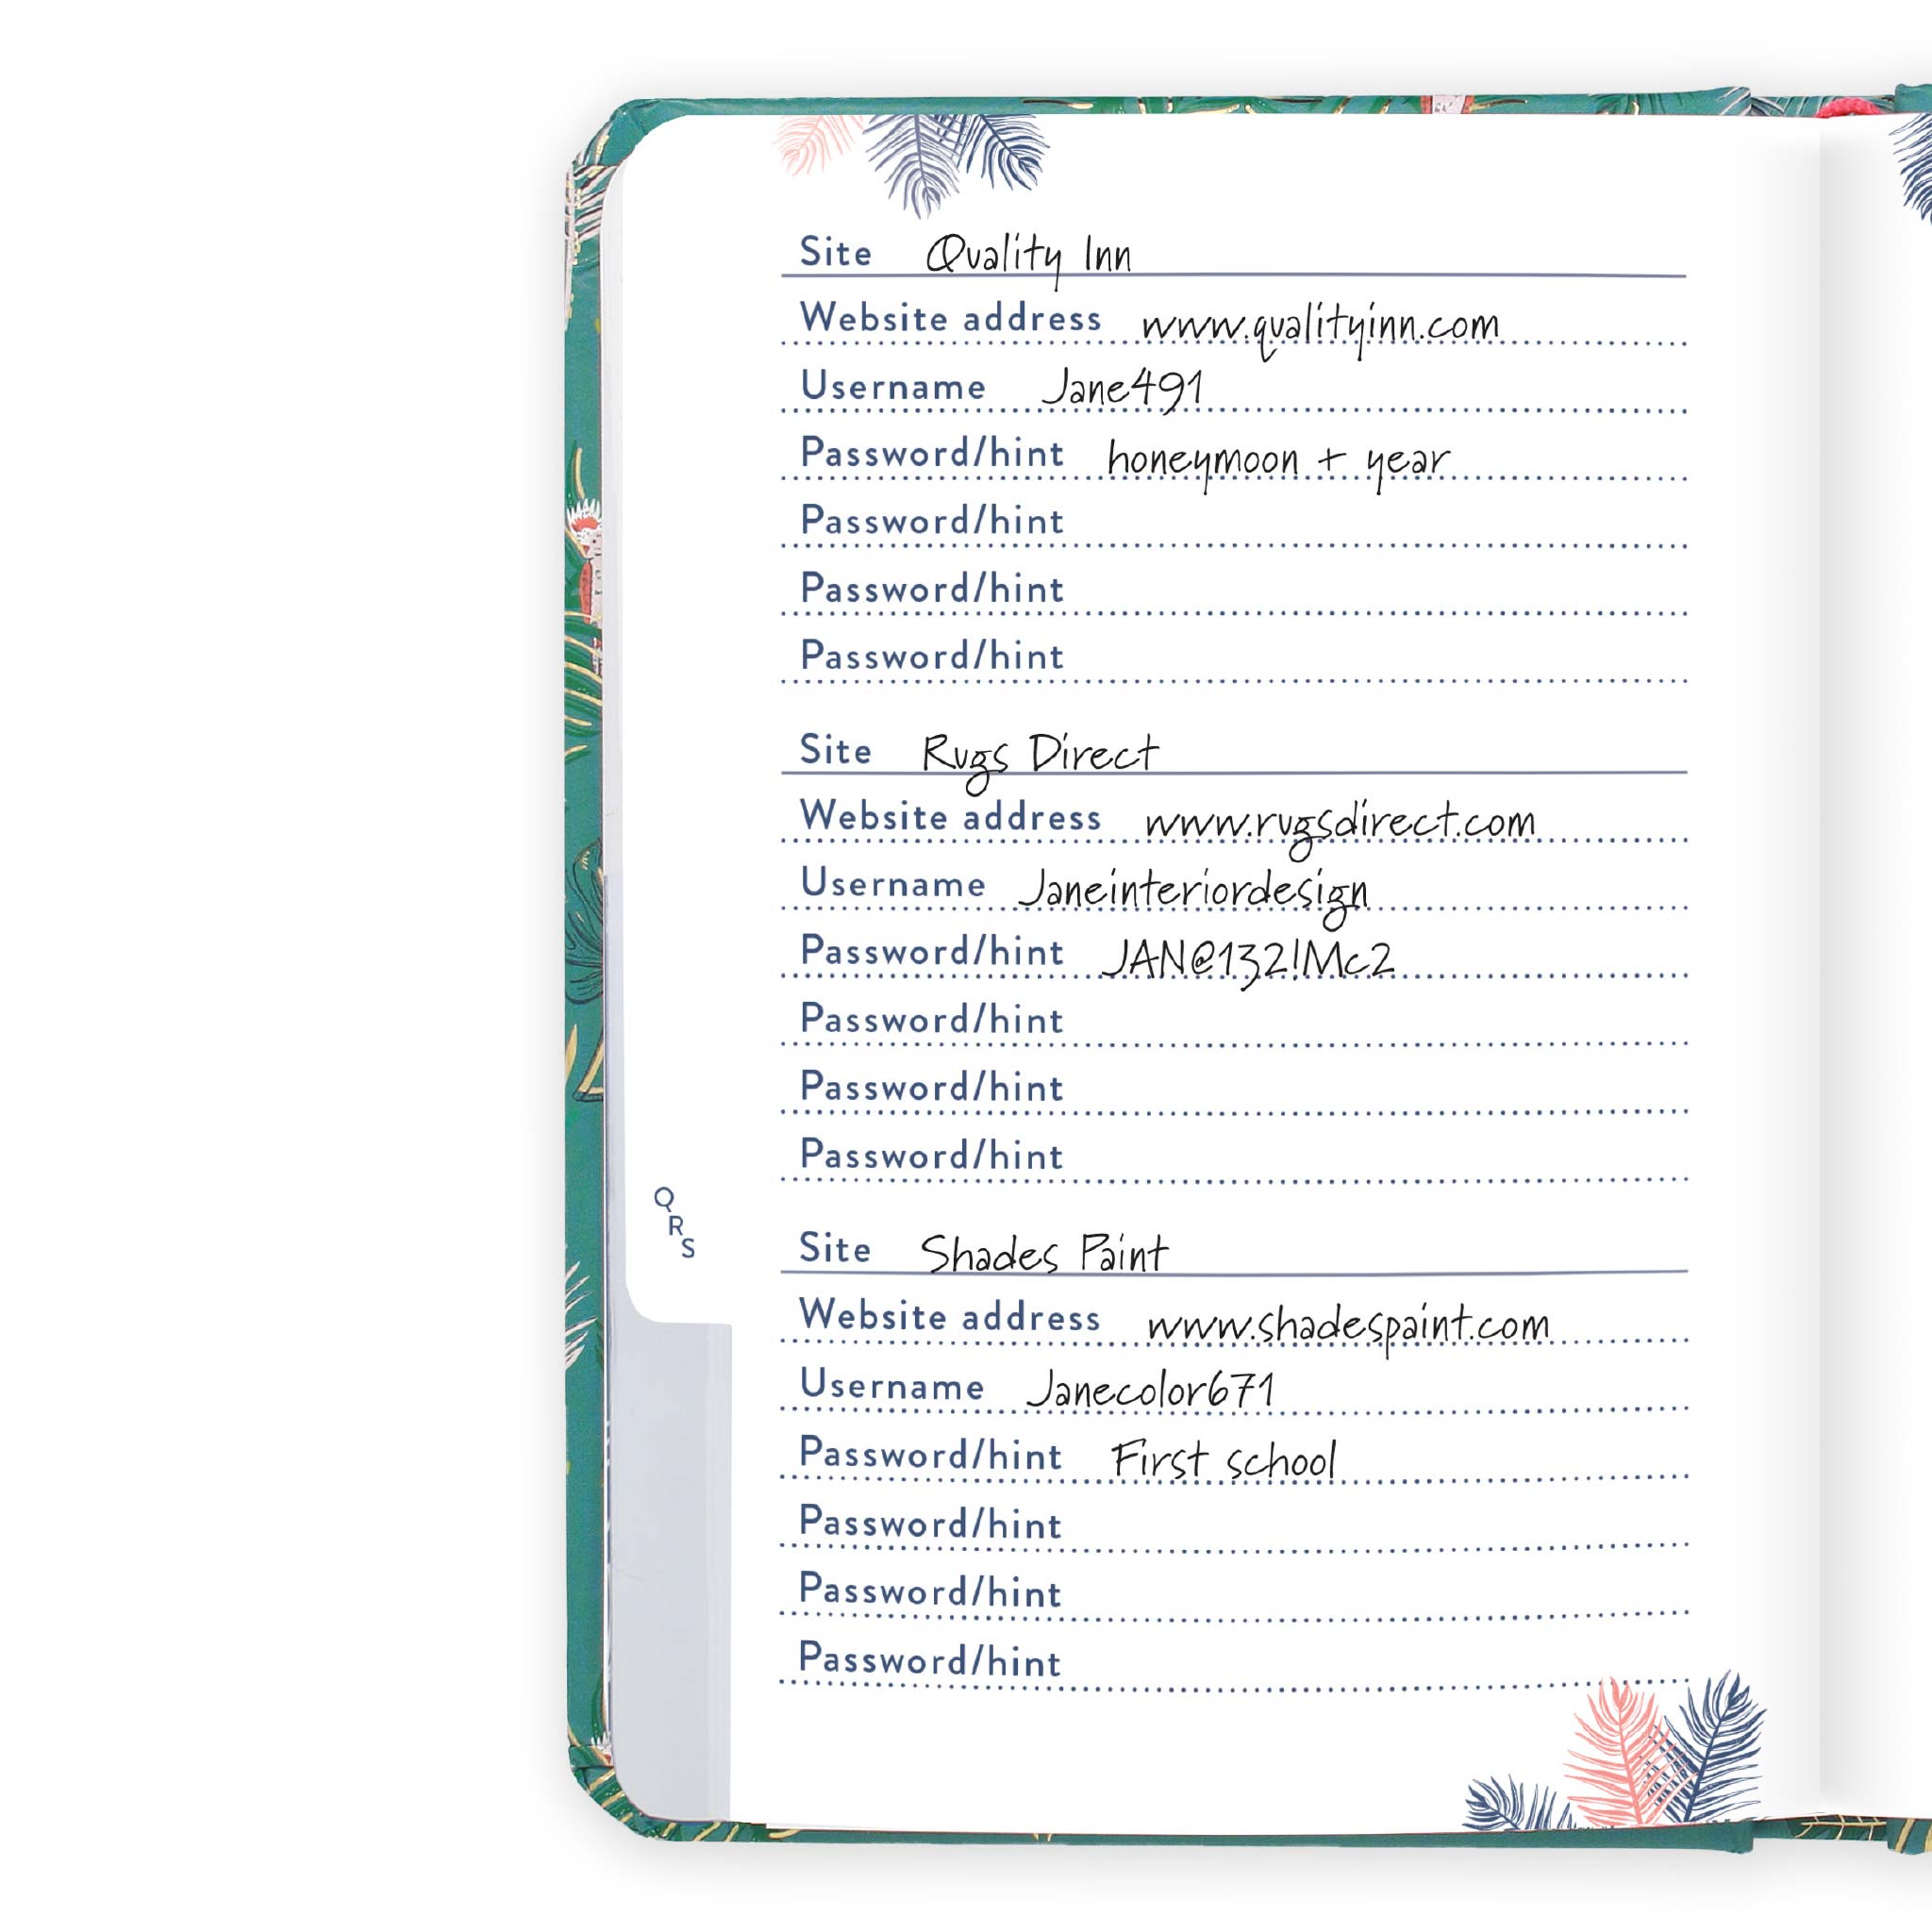 Site Quality Inn
Website address www.qualityinn.com
Username Jane491
Password/hint honeymoon + year
Password/hint
Password/hint
Password/hint
Site Rugs Direct
Website address www.rugsdirect.com
Username Janeinteriordesign
Password/hint JAN@132!Mc2
Password/hint
Password/hint
Password/hint
Q
R
S
Site Shades Paint
Website address www.shadespaint.com
Username Janecolor671
Password/hint First school
Password/hint
Password/hint
Password/hint